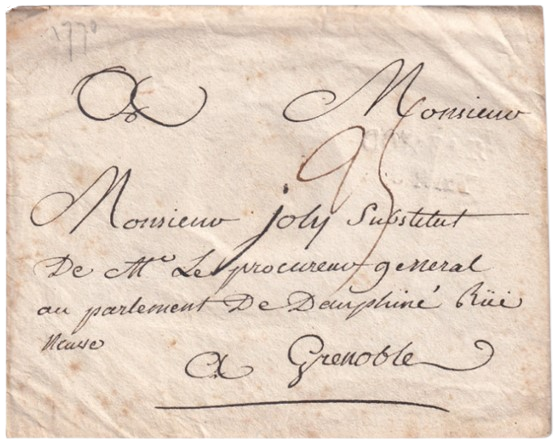 1770
A Monsieur
Monsieur joly Substitut
De Mr Le procureur general
au parlement De Dauphiné Rüe
Neuve
a Grenoble